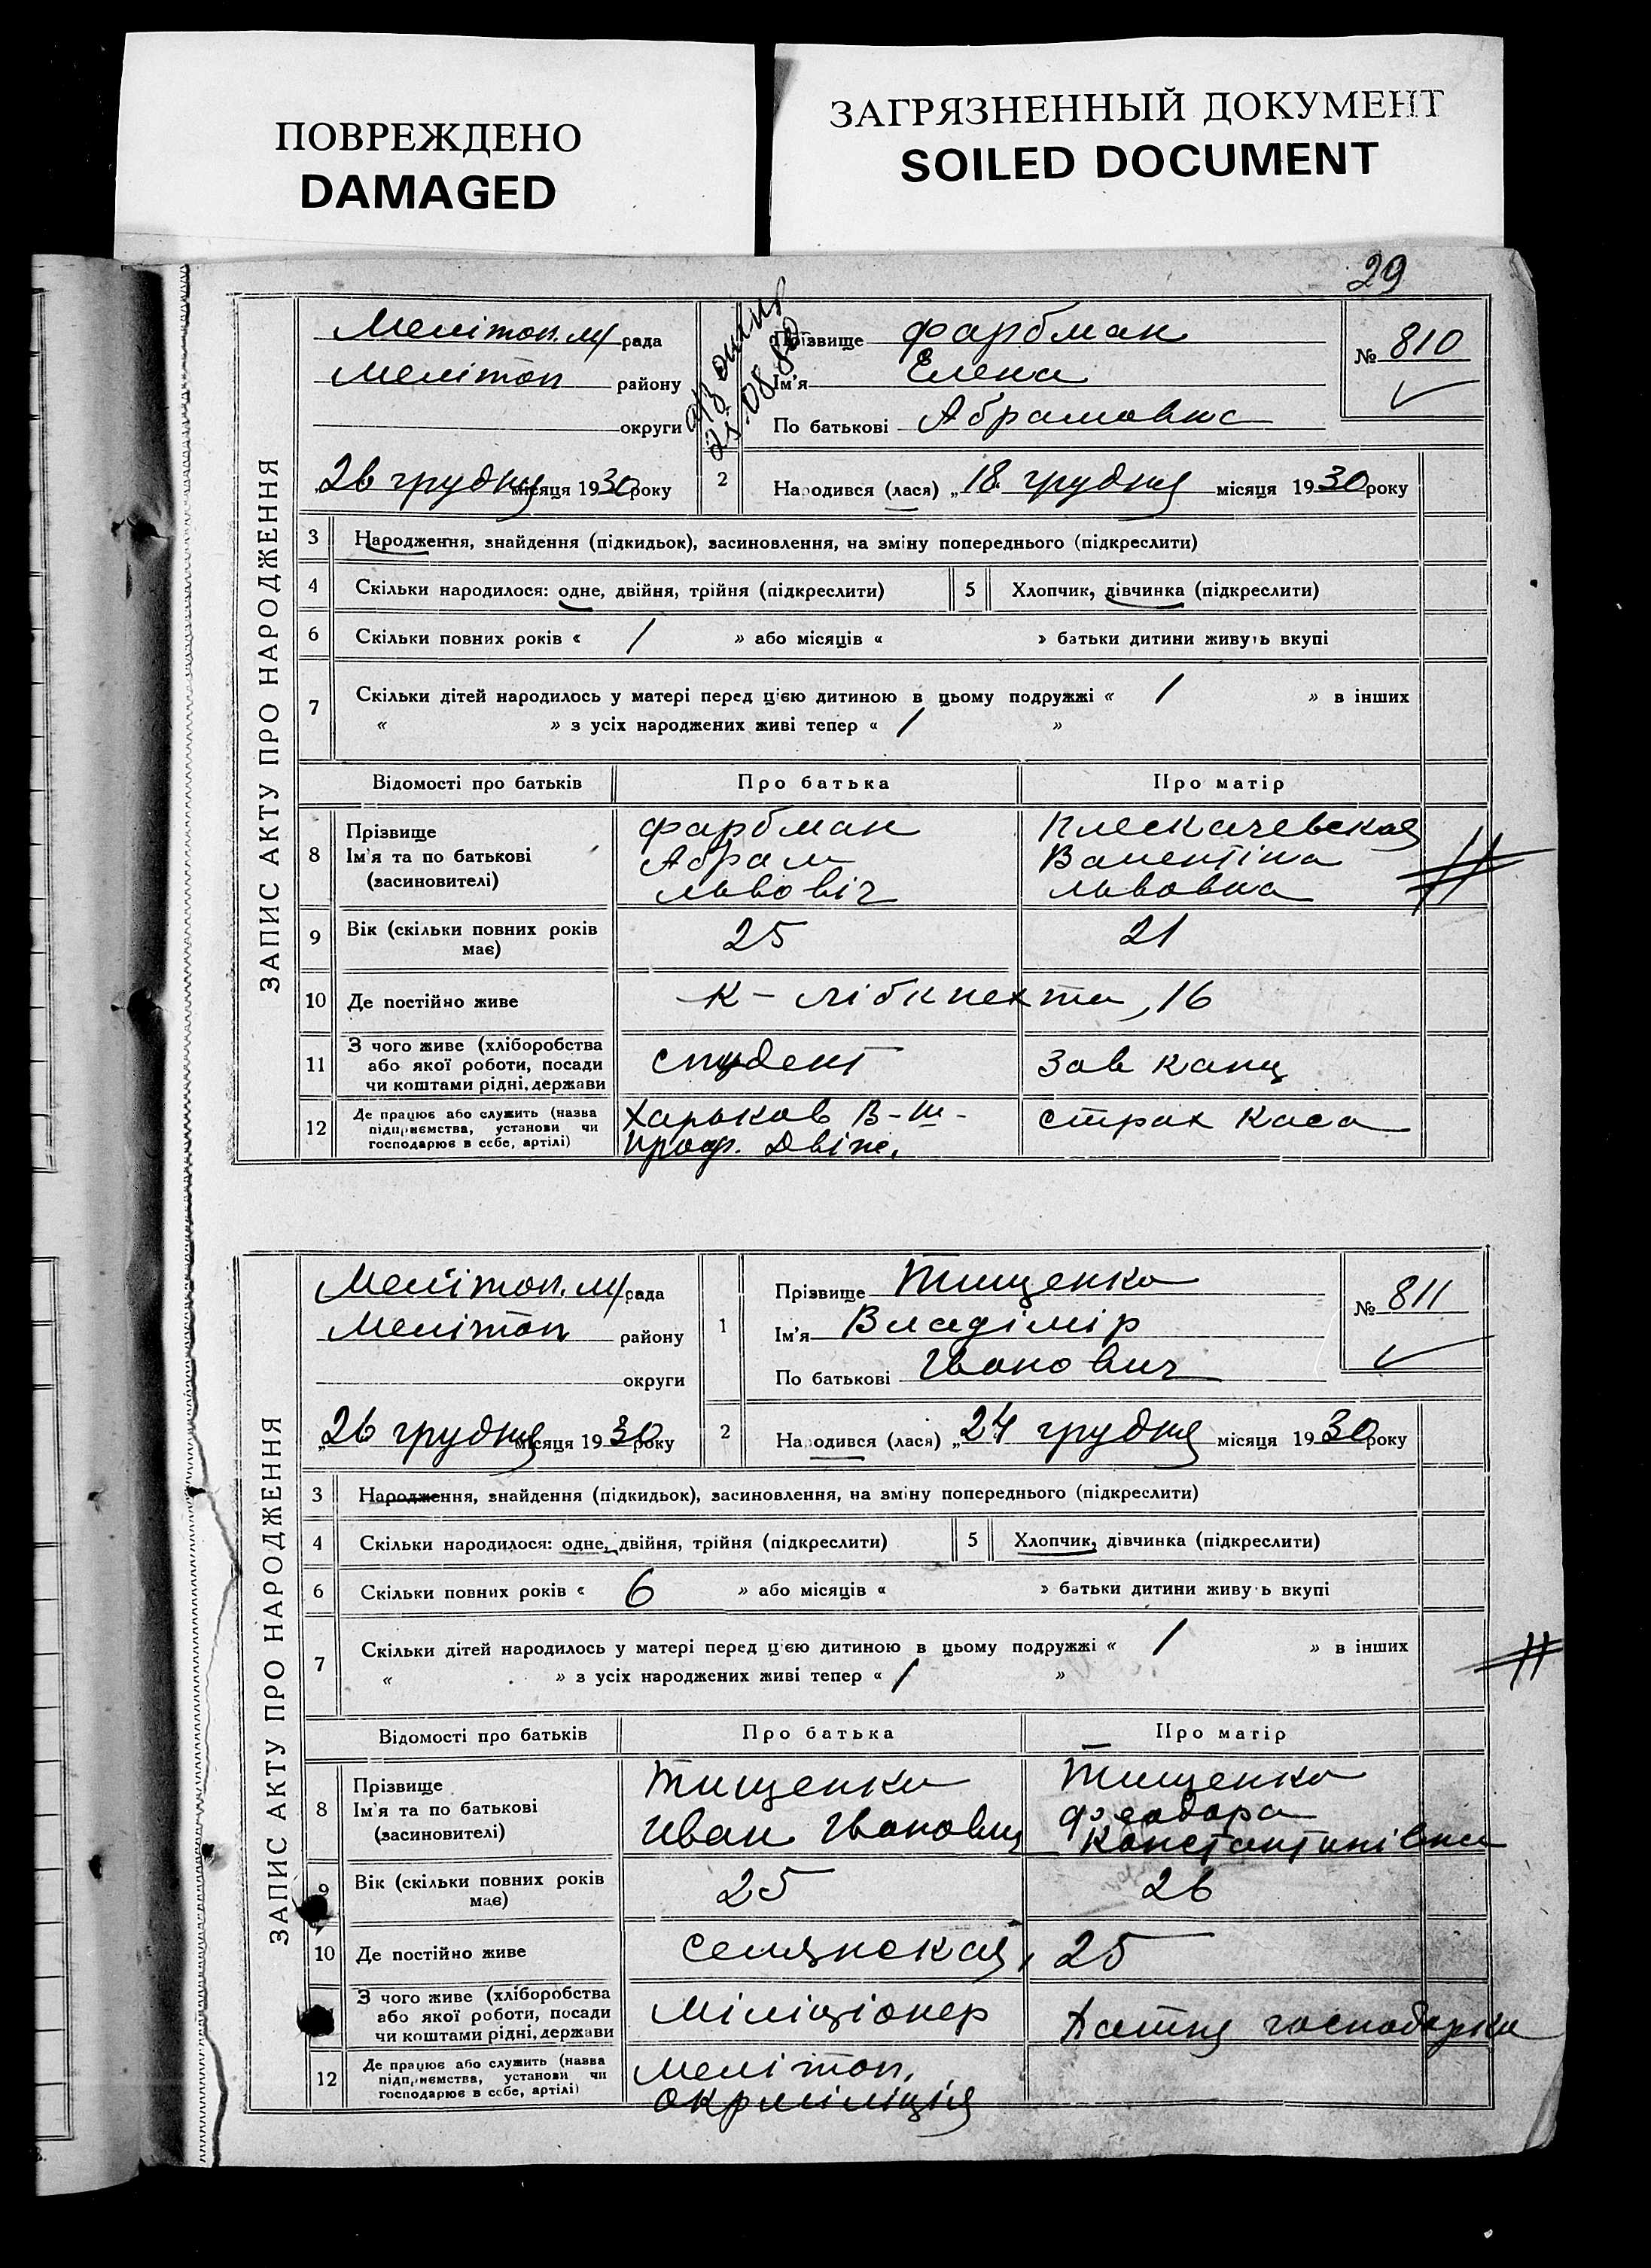 ПОВРЕЖДЕНО
DAMAGED
ЗАГРЯЗНЕННЫЙ ДОКУМЕНТ
SOILED DOCUMENT
29
ЗАПИС АКТУ ПРО НАРОДЖЕННЯ
Мелітоп. м/рада
Мелітоп району
округи
26 грудня місяця 1930 року
25.08.80
Прізвище Фарбман
Ім'я Елена
По батькові Абрамовна
№ 810
2 Народився (лася) „18 грудня місяця 1930 року
3 Народження, знайдення (підкидьок), засиновлення, на зміну попереднього (підкреслити)
4 Скільки народилося: одне, двійня, трійня (підкреслити) 5 Хлопчик, дівчинка (підкреслити)
6 Скільки повних років « 1 » або місяців « » батьки дитини живуть вкупі
7 Скільки дітей народилось у матері перед цією дитиною в цьому подружжі « 1 » в інших
« » з усіх народжених живі тепер « 1 »
Відомості про батьків Про батька Про матір
8 Прізвище
Ім'я та по батькові
(засиновителі)
Фарбман
Абрам
Львовіч
Плескачевская
Валентіна
Львовна
9 Вік (скільки повних років має) 25 21
10 Де постійно живе К-Лібкнехта, 16
11 З чого живе (хліборобства
або якої роботи, посади
чи коштами рідні, держави
студент
Зав канц
12 Де працює або служить (назва
підприємства, установи чи
господарює в себе, артілі)
Харьков В-ш-
проф. Двіж.
страх каса
ЗАПИС АКТУ ПРО НАРОДЖЕННЯ
Мелітоп. м/рада
Мелітоп району
округи
„26 грудня місяця 1930 року
1 Прізвище Тищенко
Ім'я Владімір
По батькові Іванович
№ 811
2 Народився (лася) „24 грудня місяця 1930 року
3 Народження, знайдення (підкидьок), засиновлення, на зміну попереднього (підкреслити)
4 Скільки народилося: одне, двійня, трійня (підкреслити) 5 Хлопчик, дівчинка (підкреслити)
6 Скільки повних років « 6 » або місяців « » батьки дитини живуть вкупі
7 Скільки дітей народилось у матері перед цією дитиною в цьому подружжі « 1 » в інших
« » з усіх народжених живі тепер « 1 »
Відомості про батьків Про батька Про матір
8 Прізвище
Ім'я та по батькові
(засиновителі)
Тищенко
Иван Иванович
Тищенко
Феодора
Константинівна
9 Вік (скільки повних років має) 25 26
10 Де постійно живе Селянская, 25
З чого живе (хліборобства
або якої роботи, посади
чи коштами рідні, держави
Міліціонер
Хатня господарка
12 Де працює або служить (назва
підприємства, установи чи
господарює в себе, артілі)
Мелітоп.
окрміліція